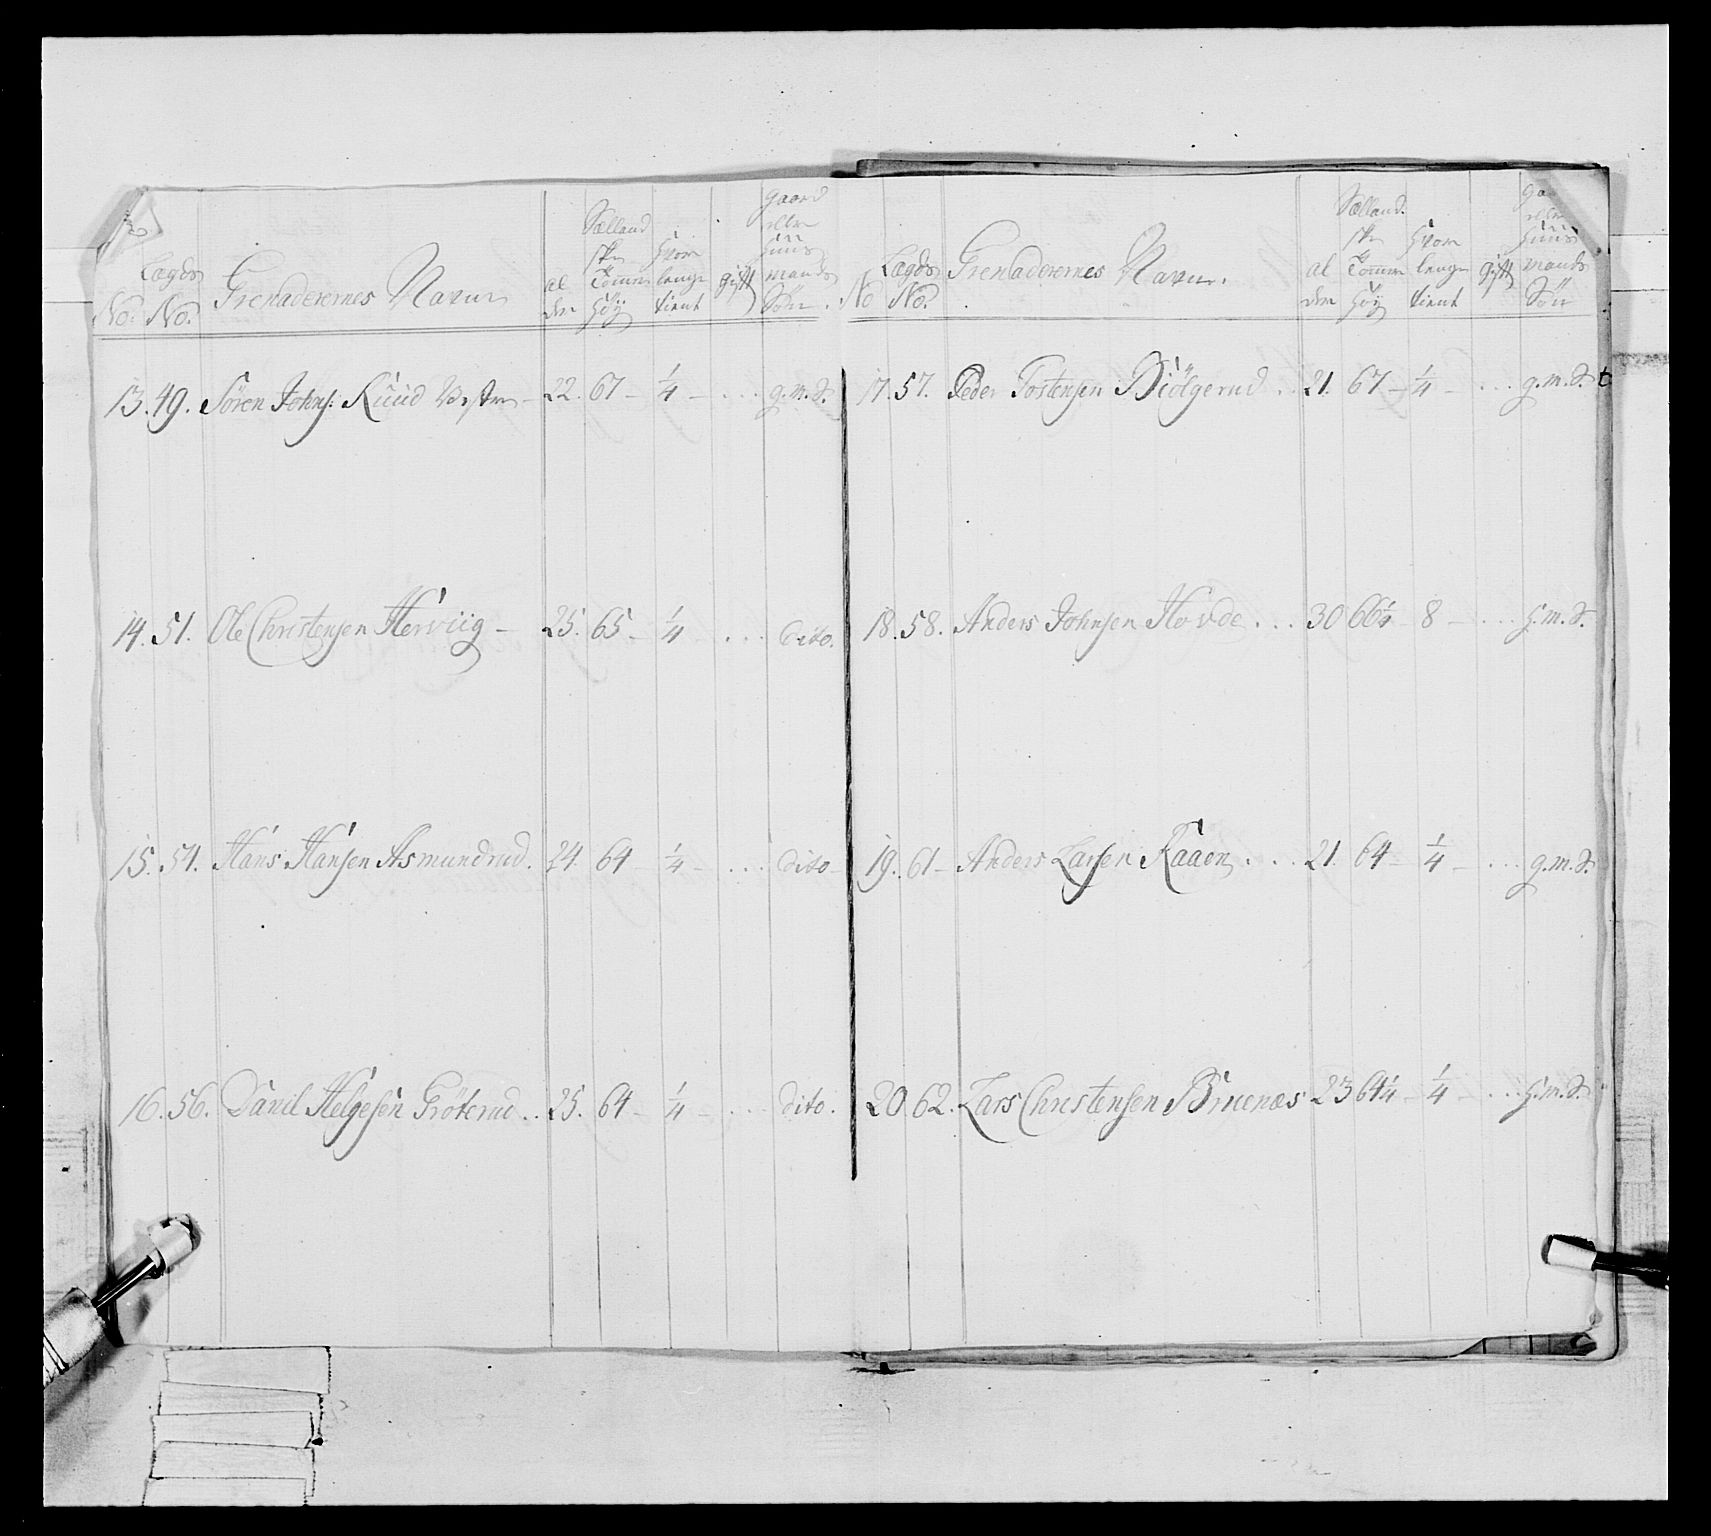 No. Lægds No. Grenaderernes Navne alder Sællandske Tommer høy Hvor lenge tient gift gaard eller huusmands Søn.
13. 49. Sören Johns: Ruud Vestre 22. 67 - 1/4 - ... g.m.S.
14. 51. Ole Christensen Herviig - 25. 65 - 1/4 - ... dito.
15. 54. Hans Hansen Asmundrud. 24. 64 - 1/4 - ... dito -
16. 56. Daniel Helgesen Gröterud .. 25. 64 - 1/4 - ... dito.
No Lægds No. Grenaderernes Navne. alder Sællandske Tommer høy Hvor lenge tient gift gaard eller huusmands Søn
17. 57. Peder Tostensen Biölgerud .. 21. 67 - 1/4 - ... g.m.S.
18. 58. Anders Johnsen Hovde ... 30 66 1/2 - 8 - ... h.m.S.
19. 61 - Anders Larsen Raaen ... 21. 64 - 1/4 - ... g.m.S.
20 62. Lars Christensen Bruenæs 23 64 1/4 - 1/4 - ... h.m.S.